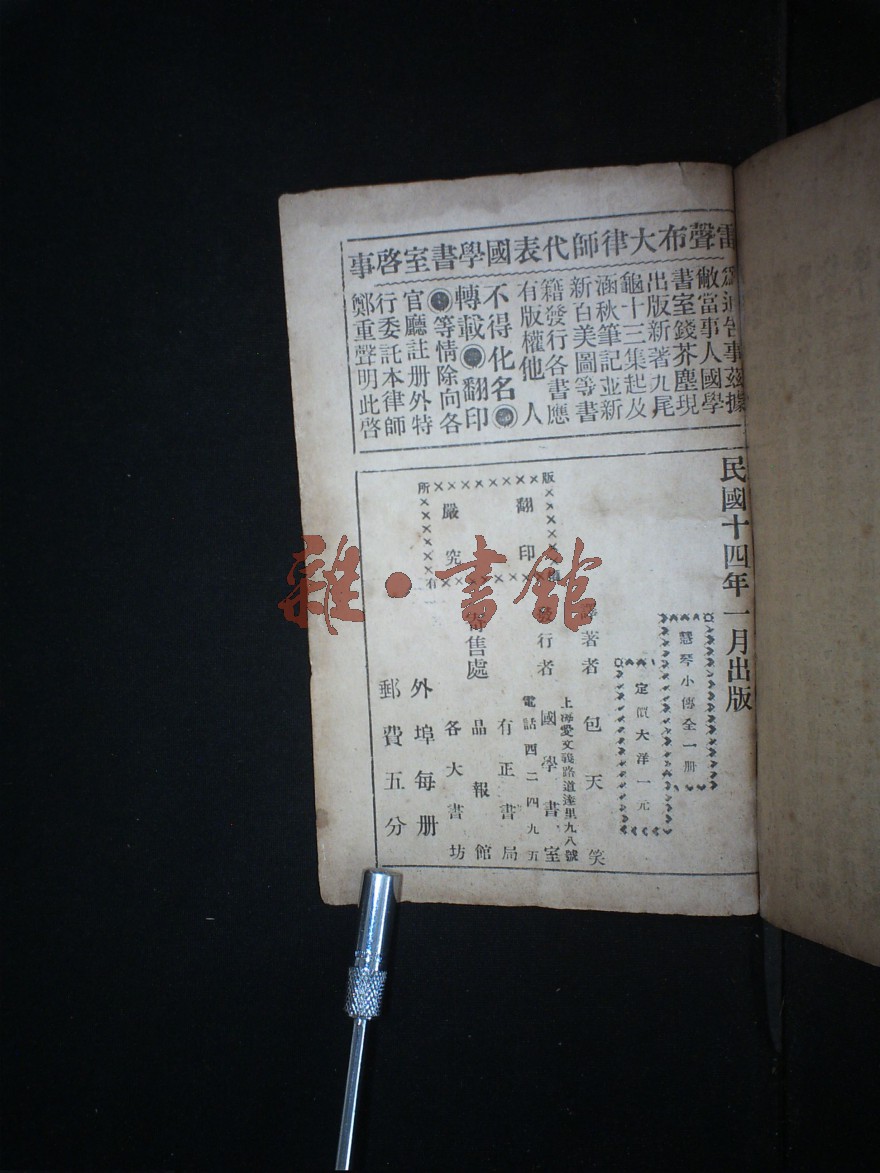 雷聲布大律師代表國學書室啓事
為通告事茲據
敝當事人國學
書室錢芥塵現
出版新著九尾
龜十三集起及
涵秋筆記並新
新百美圖等書
籍發行各書應
有版權他人
不得化名◉
轉載◉翻印
◉等情除向各
官廳註册外特
行委託本律師
鄭重聲明此啓
民國十四年一月出版
慧琴小傳全一册
定價大洋一元
譯著者 包天笑
發行者 國學書室
上海愛文義路道達里九八號
電話四二四九五
寄售處
有正書局
晶報館
各大書坊
版權所有
翻印
嚴究
外埠每册
郵費五分
雜·書館